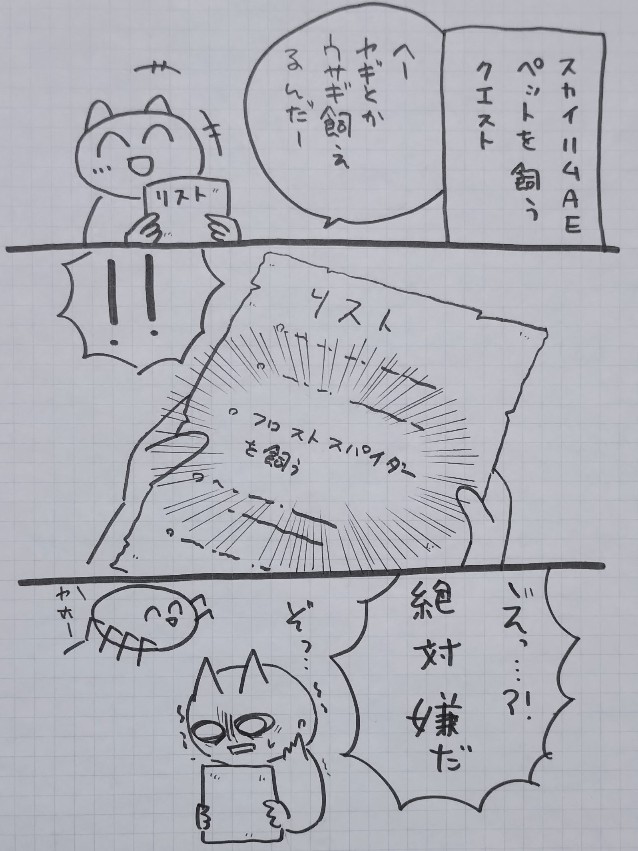 スカイリムAE
ペットを飼う
クエスト
へー
ヤギとか
ウサギ飼え
るんだー
リスト
!!
リスト
フロストスパイダー
を飼う
えっ…?!
絶対嫌だ
ぞっ…
ヤホー